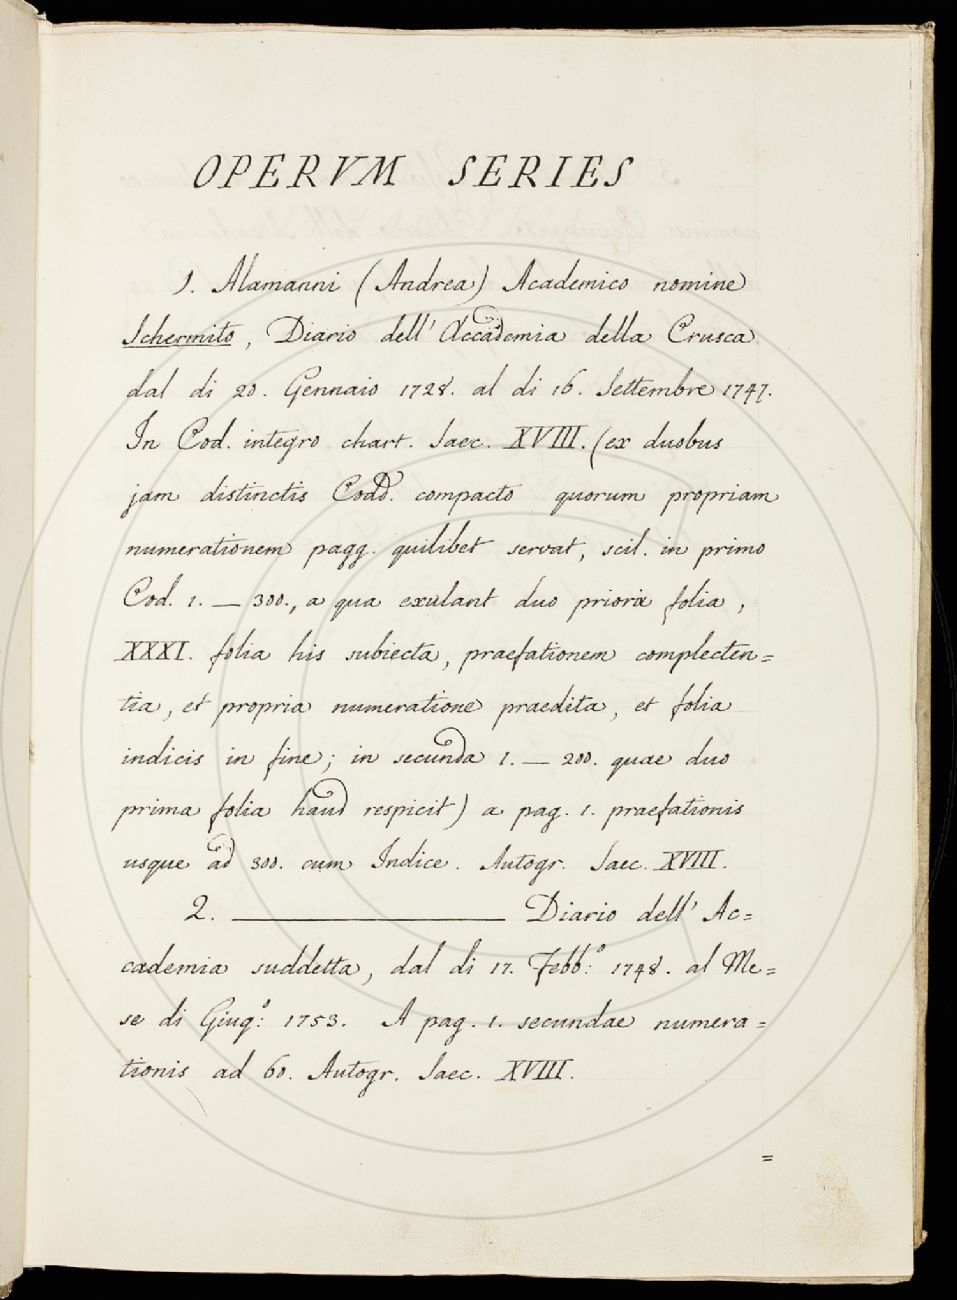 OPERVM SERIES
1. Alamanni (Andrea) Academico nomine
Schermito, Diario dell' Accademia della Crusca
dal di 20. Gennaio 1728. al di 16. Settembre 1747.
In Cod. integro chart. Saec. XVIII. (ex duobus
jam distinctis Codd. compacto quorum propriam
numerationem pagg. quilibet servat, scil. in primo
Cod. 1. — 300., a qua exulant duo priora folia,
XXXI. folia his subiecta, praefationem complecten=
tia, et propria numeratione praedita, et folia
indicis in fine; in secunda 1. — 200. quae duo
prima folia haud respicit) a pag. 1. praefationis
usque ad 300. cum Indice. Autogr. Saec. XVIII.
2. ——— Diario dell' Ac=
cademia suddetta, dal di 17. Febb:º 1748. al Me=
se di Giug:º 1753. A pag. 1. secundae numera=
tionis ad 60. Autogr. Saec. XVIII.
=